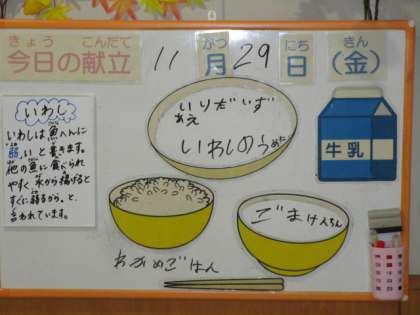 きょう こんだて がつ にち きん
今日の献立 11 月 29 日 (金)
いわし
いわしは魚へんに
弱いと書きます。
他の魚に食べられ
やすく水から揚げると
すぐに弱るから。と、
言われています。
いりだいず
あえ
いわしのうめに
牛乳
ごまけんちん
わかめごはん